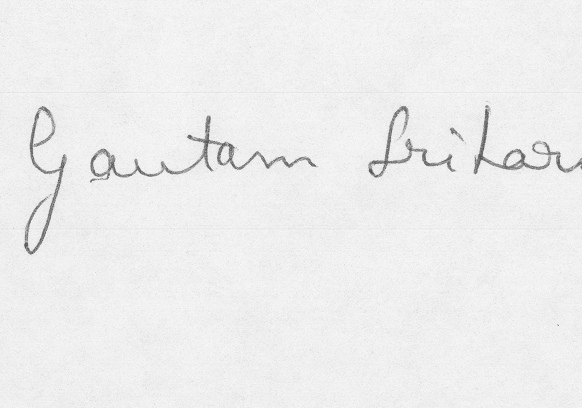 Gautam Srihar